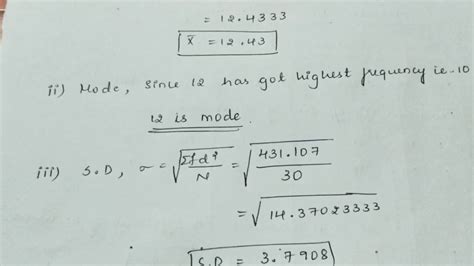 = 12.4333
x̄ = 12.43
ii) Mode, Since 12 has got highest frequency ie. 10
12 is mode.
iii) S.D, σ = √(Σfd²/N) = √(431.107/30)
= √14.37023333
S.D = 3.7908